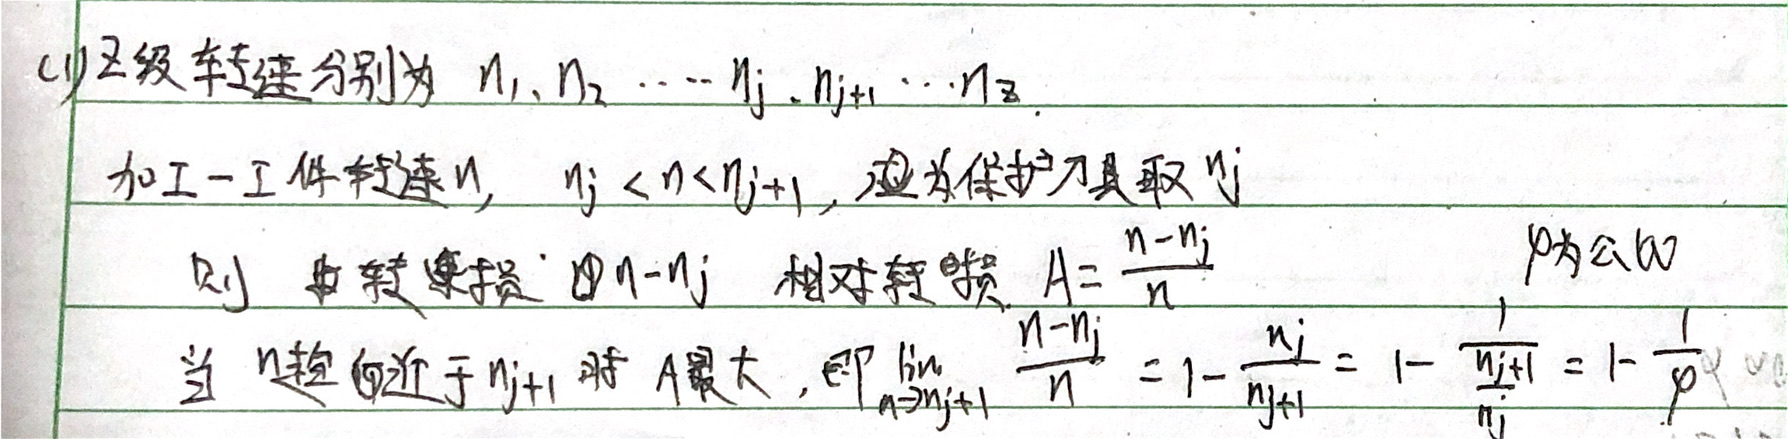 (1) Z级转速分别为 n₁、n₂ …… nⱼ、nⱼ₊₁ … n_z.
加工一工件转速n, nⱼ < n < nⱼ₊₁, 为保护刀具取 nⱼ
则 转速损 n-nⱼ 相对转损 A = (n-nⱼ)/n φ为公比
当 n趋向近于 nⱼ₊₁ 时 A最大, 即 lim n→nⱼ₊₁ (n-nⱼ)/n = 1 - nⱼ/nⱼ₊₁ = 1 - 1/(nⱼ₊₁/nⱼ) = 1 - 1/φ